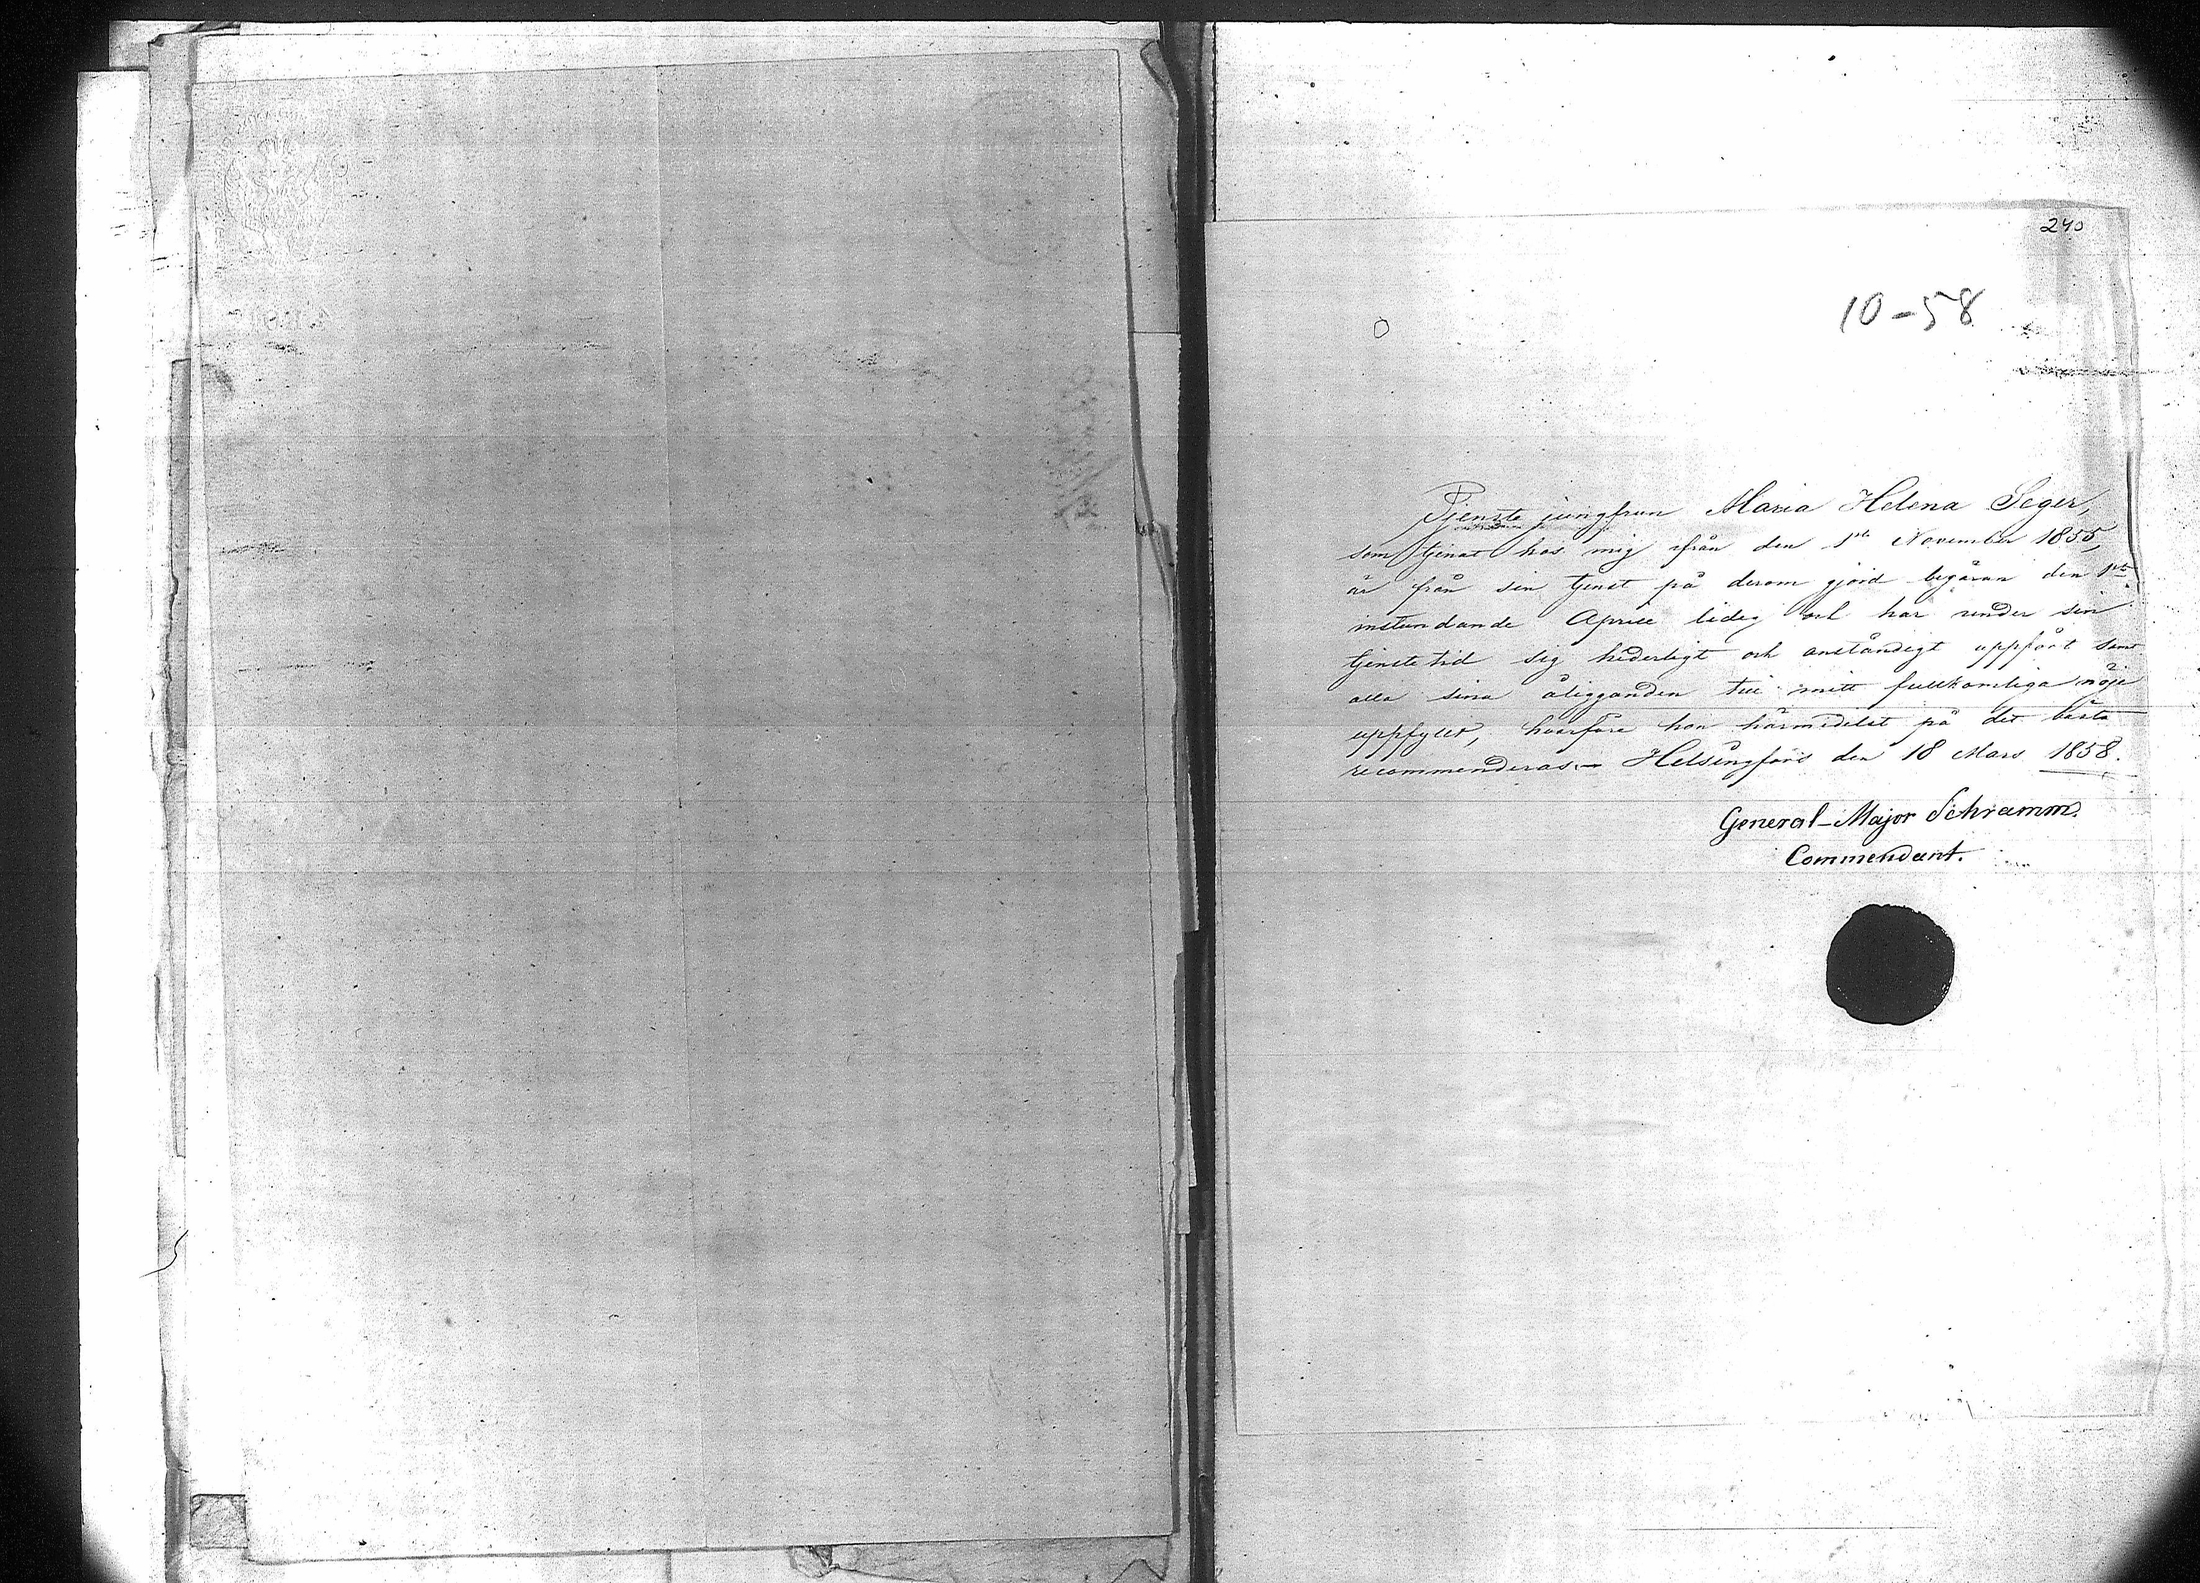 240
10-58
Tjenste jungfrun Maria Helena Seger,
som tjenat hos mig ifrån den 1sta November 1855,
är från sin tjenst på derom gjord begäran den 1sta
instundande Aprill ledig och har under sin
tjenste tid sig hederligt och anständigt uppfört samt
alla sina åligganden till mitt fullkomliga nöje
uppfyllt, hvarföre hon härmedelst på det bästa
recommenderas.— Helsingfors den 18 Mars 1858.
General-Major Schramm.
Commendant.